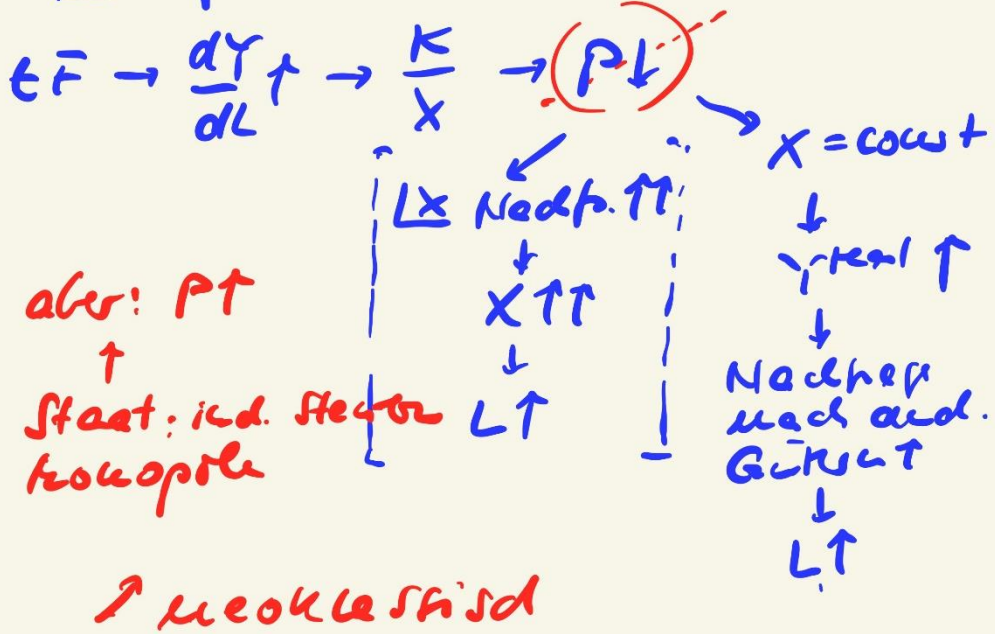 tF → dY/dL ↑ → K/X → (P↓)
X = const
LX Nachfr. ↑↑
↓
X ↑↑
↓
L↑
↓
Yreal ↑
↓
Nachfrage
nach and.
Gütern ↑
↓
L↑
aber: P↑
↑
Staat: ind. Steuern
Monopole
↗ neoklassisch